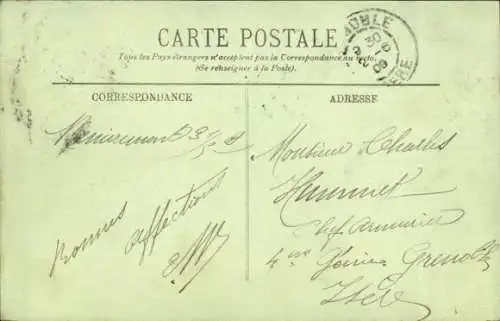 CARTE POSTALE
Tous les Pays étrangers n'acceptent pas la Correspondance au recto.
(Se renseigner à la Poste).
30
09
CORRESPONDANCE
ADRESSE
Bonnes
affections
Monsieur Charles
Hummel
Chef Armurier
4me Génie Grenoble
Isère